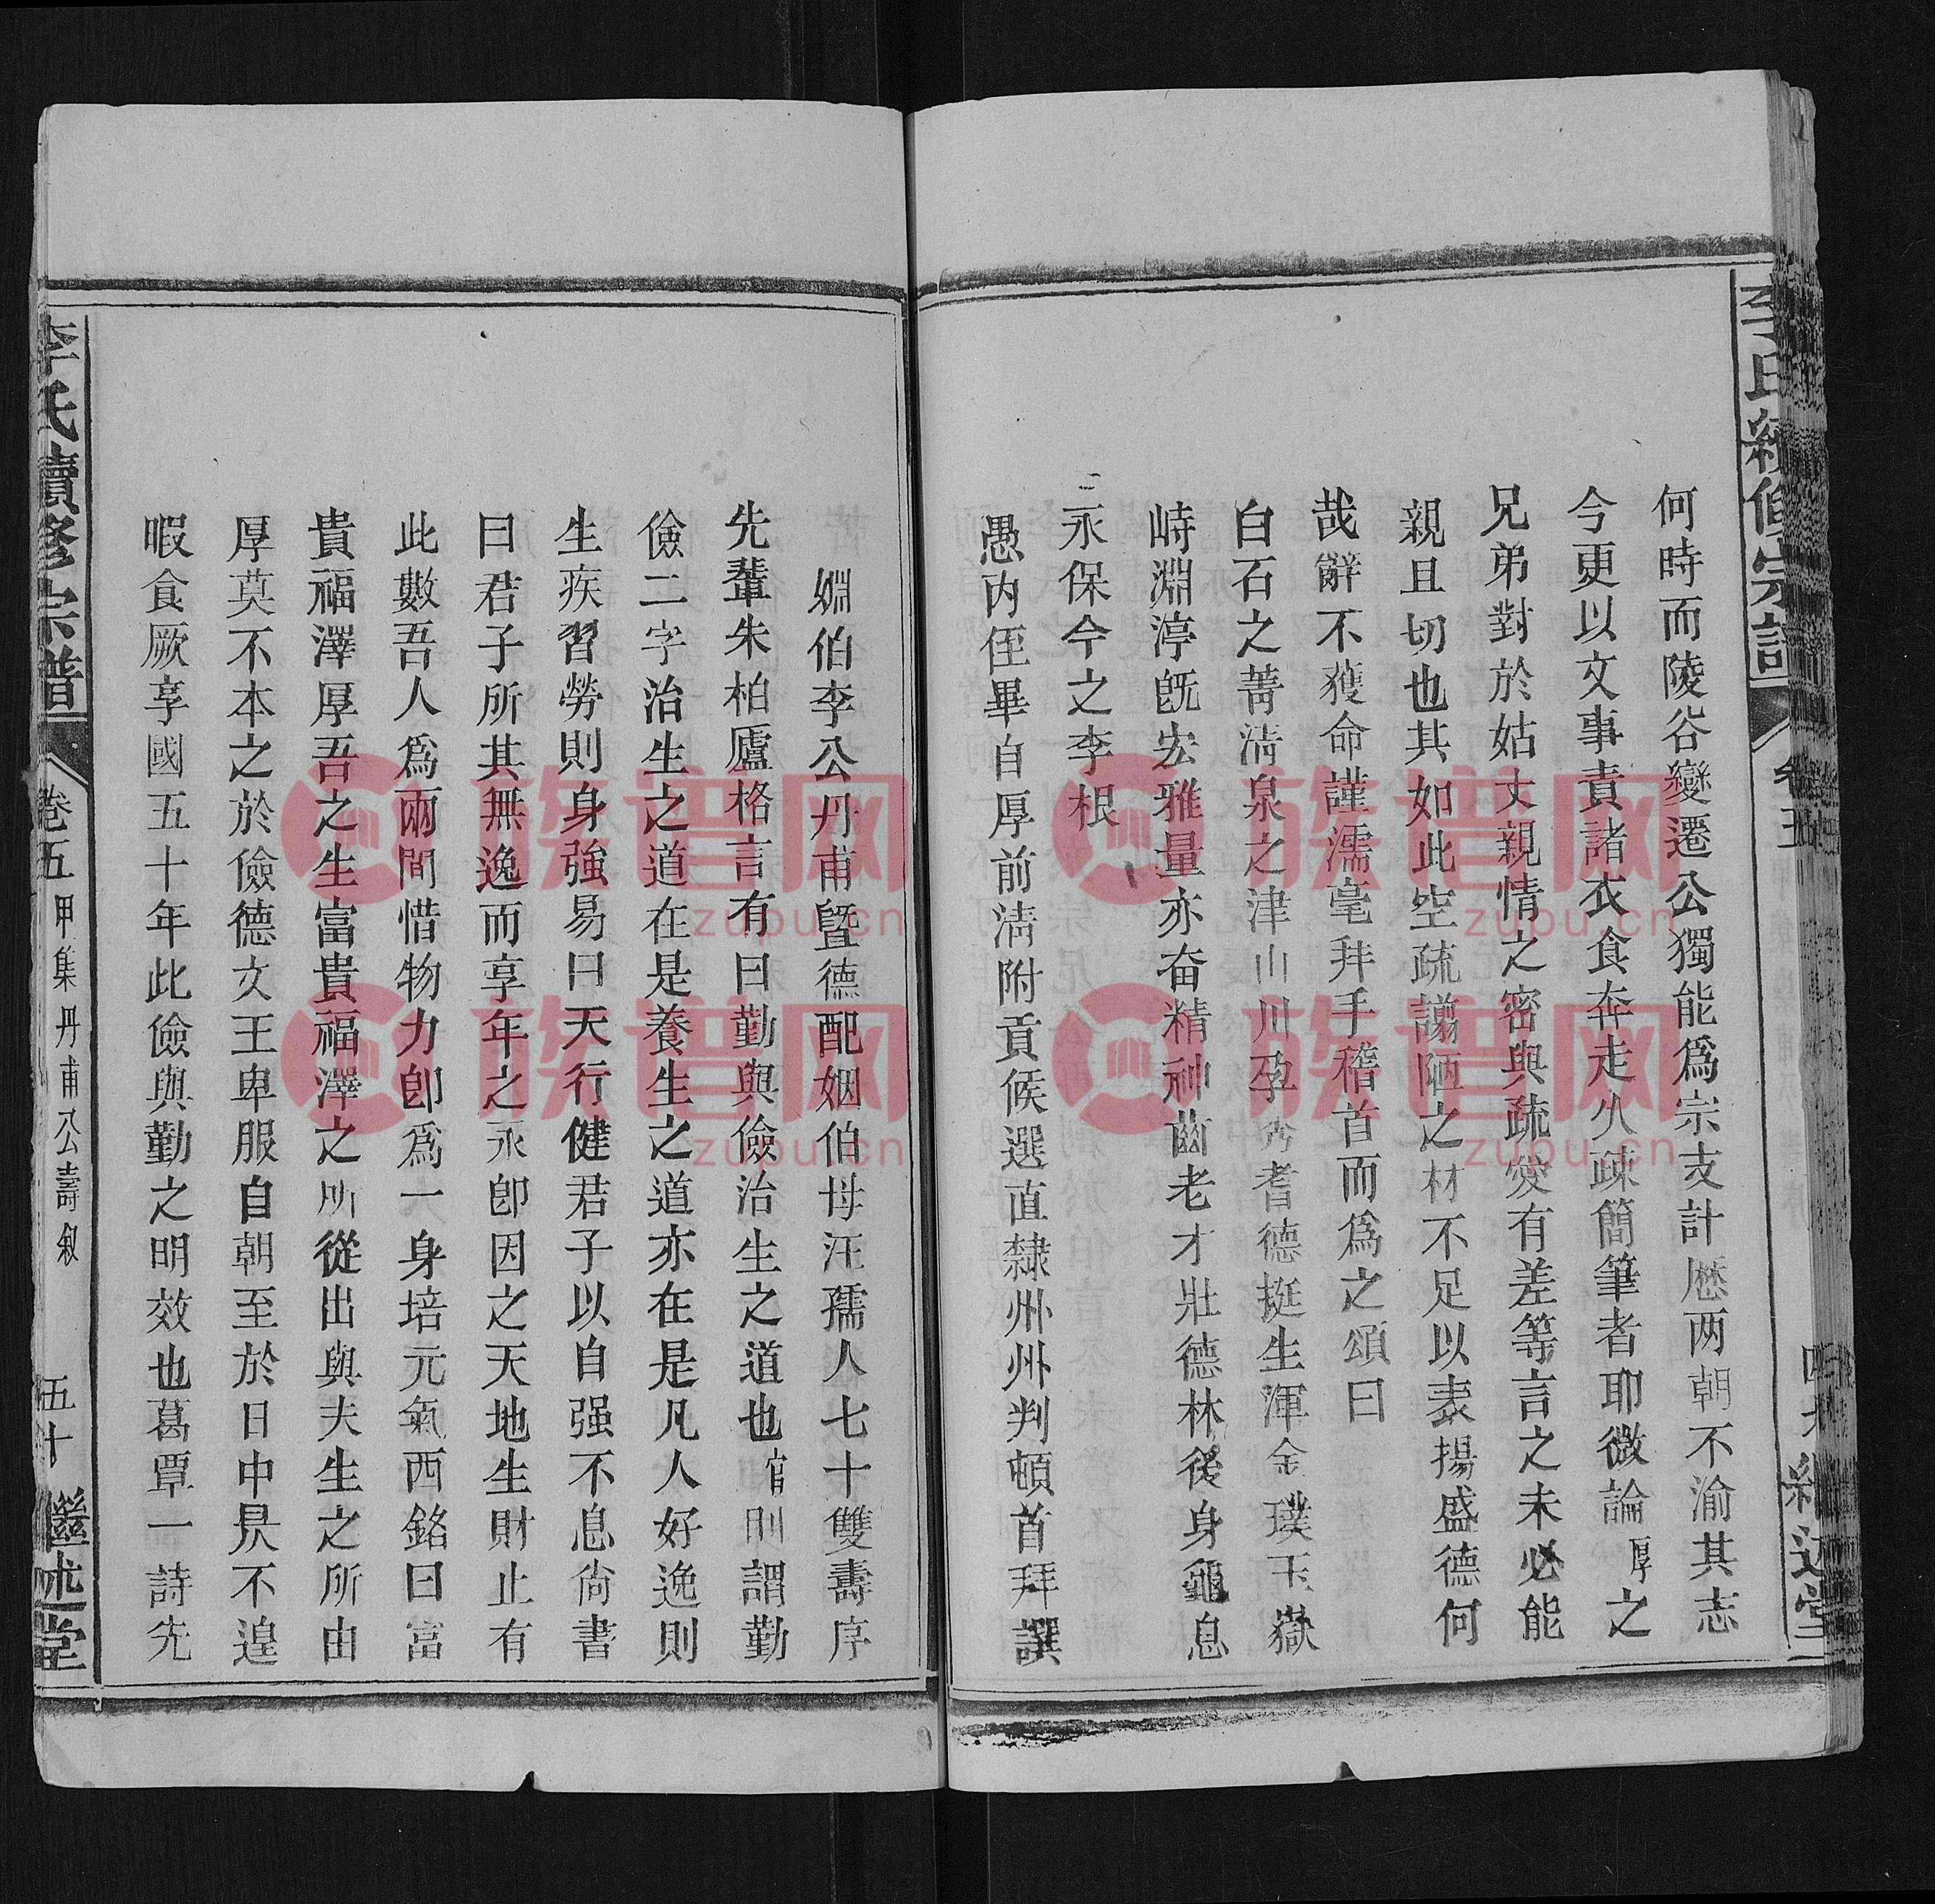 李氏續修宗譜
卷五
繼述堂
何時而陵谷變遷公獨能爲宗支計歷两朝不渝其志
今更以文事責諸衣食奔走久疎簡筆者耶微論厚之
兄弟對於姑丈親情之密與疏爱有差等言之未必能
親且切也其如此空疏譾陋之材不足以表揚盛德何
哉辭不獲命謹濡毫拜手稽首而爲之頌曰
白石之菁清泉之津山川孕秀耆德挺生渾金璞玉嶽
峙淵渟旣宏雅量亦奋精神齒老才壯德林後身龜息
永保今之李根
愚內侄畢自厚前清附貢候選直隸州州判頓首拜譔
姻伯李公丹甫曁德配姻伯母汪孺人七十雙壽序
先輩朱柏廬格言有曰勤與儉治生之道也官則謂勤
儉二字治生之道在是養生之道亦在是凡人好逸則
生疾習勞則身強易曰天行健君子以自强不息尙書
曰君子所其無逸而享年之永卽因之天地生財止有
此數吾人爲兩間惜物力卽爲一身培元氣西銘曰富
貴福澤厚吾之生富貴福澤之所從出與夫生之所由
厚莫不本之於儉德文王卑服自朝至於日中昃不遑
暇食厥享國五十年此儉與勤之明效也葛覃一詩先
李氏續修宗譜
卷五 甲集 丹甫公壽叙
五十
繼述堂
族谱网
zupu.cn
族谱网
zupu.cn
族谱网
zupu.cn
族谱网
zupu.cn